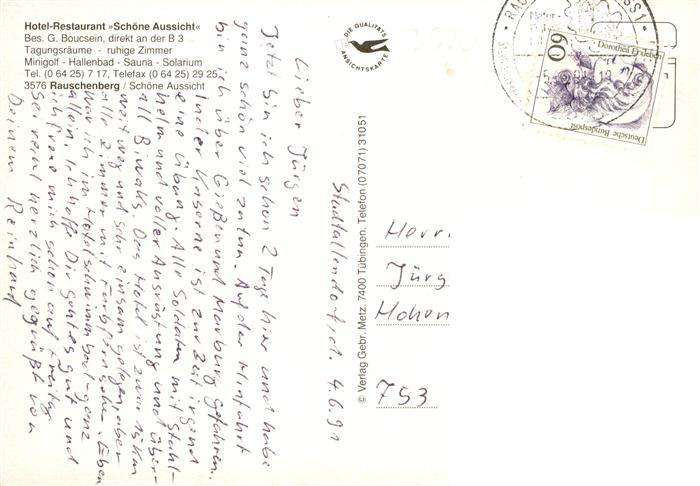 Hotel-Restaurant »Schöne Aussicht«
Bes. G. Boucsein, direkt an der B 3
Tagungsräume · ruhige Zimmer
Minigolf - Hallenbad - Sauna - Solarium
Tel. (0 64 25) 7 17, Telefax (0 64 25) 29 25
3576 Rauschenberg / Schöne Aussicht
DIE QUALITÄTS
ANSICHTSKARTE
60
Dorothea Erxleben
Deutsche Bundespost
Stadtallendorf, d. 4.6.91
Lieber Jürgen
Jetzt bin ich schon 2 Tage hier und habe
ganz schön viel zu tun. Auf der Hinfahrt
bin ich über Gießen und Marburg gefahren.
In der Kaserne ist zur Zeit irgend
eine Übung. Alle Soldaten mit Stahl-
helm und voller Ausrüstung und über-
all Biwaks. Das Hotel ist zwar 15 km
weit weg und sehr einsam gelegen, aber
alle Zimmer mit Farbfernseher. Eben
war ich im Hotelschwimmbad - ganz
allein. Ich hoffe Dir geht es gut und
ich freue mich schon auf Freitag
Sei recht herzlich gegrüßt von
Deinem Reinhard
© Verlag Gebr. Metz, 7400 Tübingen, Telefon (07071) 31051
Herrn
Jürg
Hohen
753